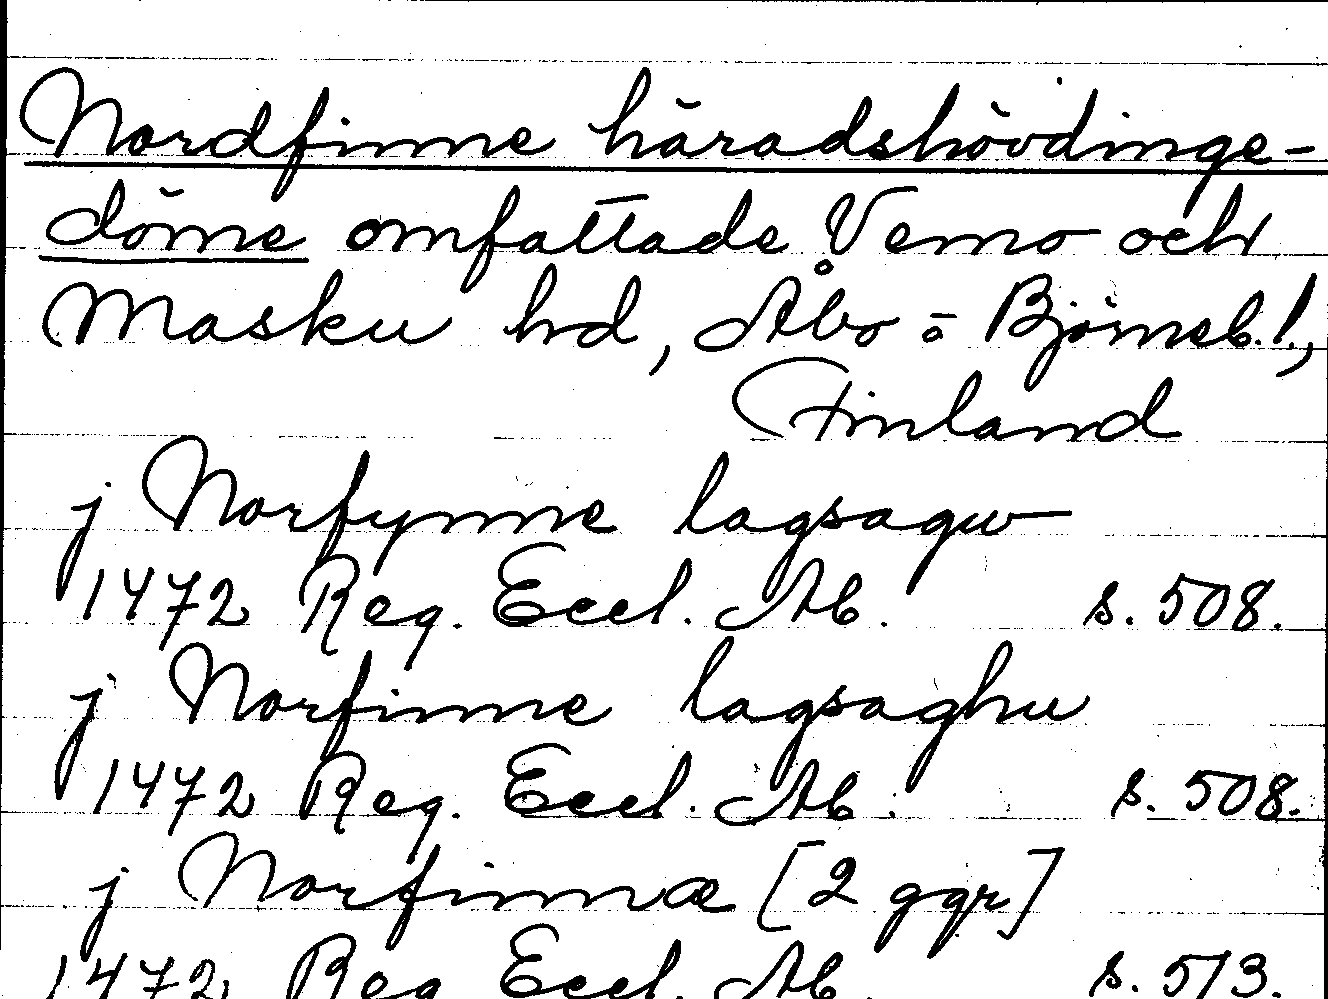 Nordfinne häradshövdinge-
döme omfattade Vemo och
Masku hd, Åbo ō Björneb. l.,
Finland
j Norfynne lagsagw
1472 Reg. Eccl. Ab. s. 508.
j Norfinne lagsaghu
1472 Reg. Eccl. Ab. s. 508.
j Norfinnæ [2 ggr]
1472 Reg Eccl. Ab. s. 513.